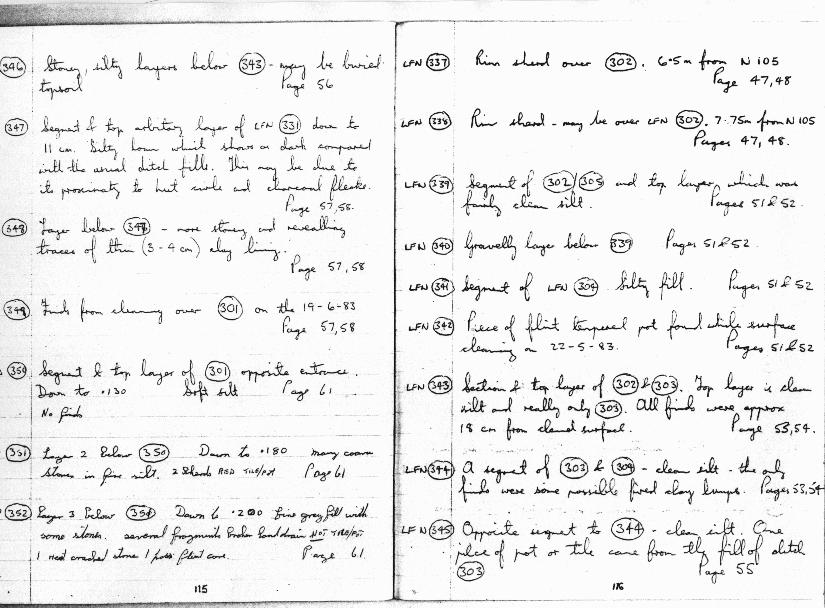 (346) Stoney, silty layers below (343) - may be buried
topsoil Page 56
(347) Segment & top arbitrary layer of LFN (331) down to
11 cm. Silty loam which shows as dark compared
with the usual ditch fills. This may be due to
its proximity to and charcoal flecks.
Page 57,58.
(348) Layer below (347) - more stoney and revealing
traces of thin (3-4 cm) clay lining.
Page 57,58
(349) Finds from cleaning over (301) on the 19-6-83
Page 57,58
(350) Segment & top layer of (301) opposite entrance.
Down to .130 Soft silt Page 61
No finds
(351) Layer 2 below (350) Down to .180 many coarse
stones in fine silt. 2 Sherds RED TILE/POT Page 61
(352) Layer 3 below (351) Down to .200 fine grey fill with
some stones. several fragments broken land drain NOT TILE/POT
1 heat cracked stone 1 poss flint core. Page 61.
115
LFN (337) Rim sherd over (302). 6.5m from N 105
Page 47,48
LFN (338) Rim sherd - may be over LFN (302). 7.75m from N 105
Pages 47, 48.
LFN (339) Segment of (302/305) and top layer, which was
fairly clean silt. Pages 51 & 52.
LFN (340) Gravelly layer below 339 Pages 51 & 52.
LFN (341) Segment of LFN (304) Silty fill. Pages 51 & 52
LFN (342) Piece of flint tempered pot found while surface
cleaning on 22-5-83. Pages 51 & 52
LFN (343) Section & top layer of (302) & (303). Top layer is clean
silt and really only (303). All finds were approx
18 cm from cleaned surface. Page 53,54.
LFN (344) A segment of (303) & (304) - clean silt - the only
finds were some possible fired clay lumps. Pages 53,54
LFN (345) Opposite segment to (344) - clean silt. One
piece of pot or tile came from the fill of ditch
(303) Page 55
116